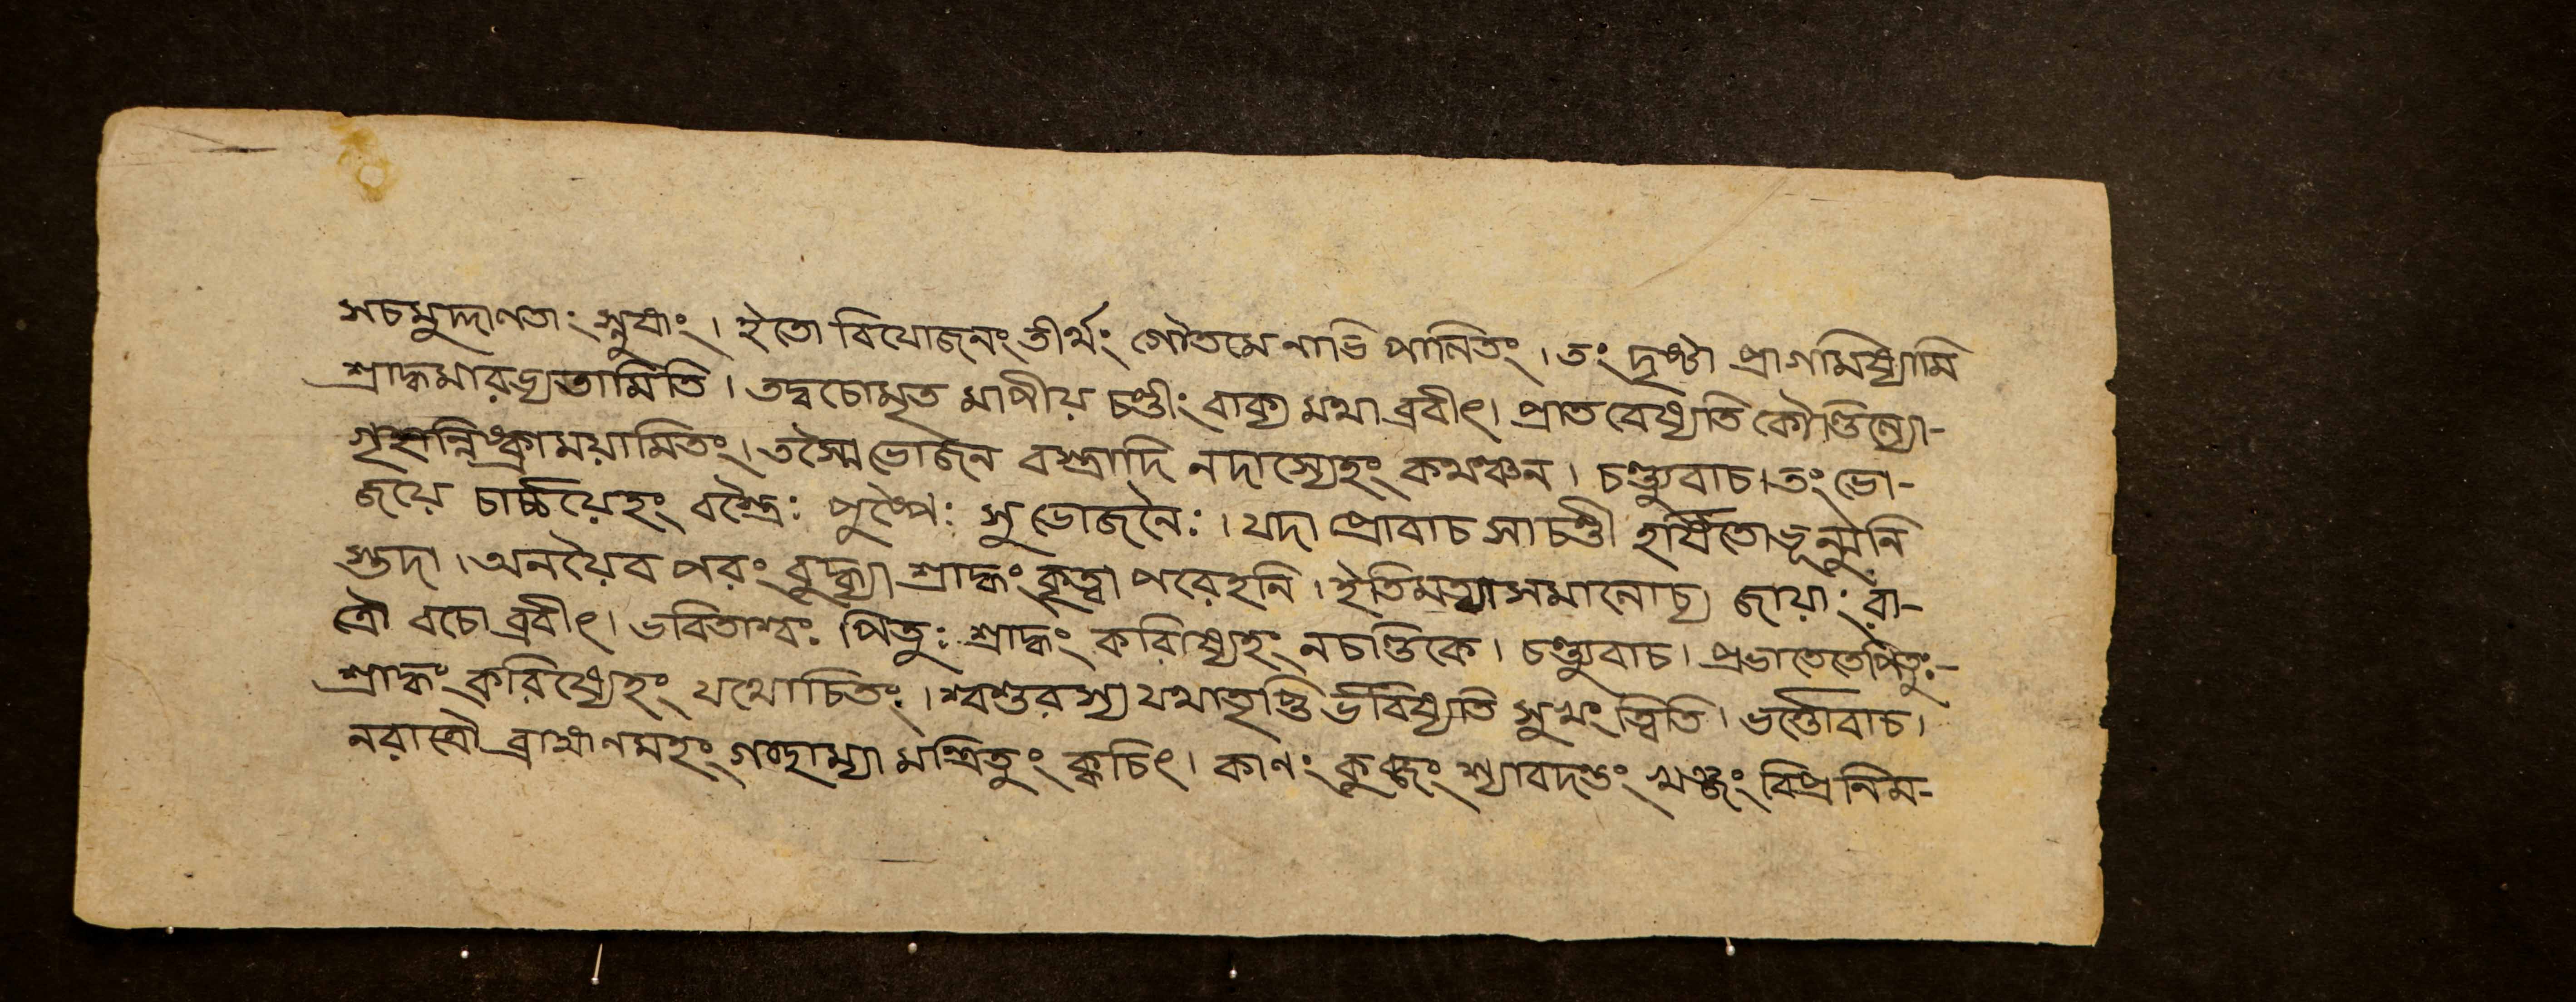 সচমুদ্দাণতাং সুষাং । ইতো বিযোজনং তীর্থং গৌতমেনাভি পানিতং । তং দৃষ্টা প্রাগমিষ্যামি
শ্রাদ্ধমারভ্যতামিতি । তদ্বচোমৃত মাপীয় চণ্ডীং বাক্য মথা ব্রবীৎ । প্রাত বেষ্যতি কৌণ্ডিন্যো-
গৃহান্নিষ্ক্রাময়ামিতং । তস্মৈ ভোজন বস্ত্রাদি নদাস্যেহং কথঞ্চন । চণ্ড্যুবাচ । তং ভো-
জয়ে চার্চ্চয়েহং বস্ত্রৈঃ পুষ্পৈঃ সুভোজনৈঃ । যদা প্রোবাচ সাচণ্ডী হর্ষিতোভূন্মুনি
স্তদা । অনয়ৈব পরং বুদ্ধ্যা শ্রাদ্ধং কৃত্বা পরেহনি । ইতিমত্বাসমালোচ্য জায়াং রা-
ত্রৌ বচো ব্রবীৎ । ভবিতাশ্বঃ পিতুঃ শ্রাদ্ধং করিষ্যেহং নচণ্ডিকে । চণ্ড্যুবাচ । প্রভাতেতেপিতুঃ-
শ্রাদ্ধং করিষ্যেহং যথোচিতং । শ্বশুরস্য যথাতৃপ্তি র্ভবিষ্যতি সুখং ত্বিতি । ভর্ত্তোবাচ ।
নরাত্রৌ ব্রাহ্মণমহং গচ্ছাম্যা মন্ত্রিতুং ক্বচিৎ । কাণং কুব্জং শ্যাবদন্তং খঞ্জং বিপ্র নিম-